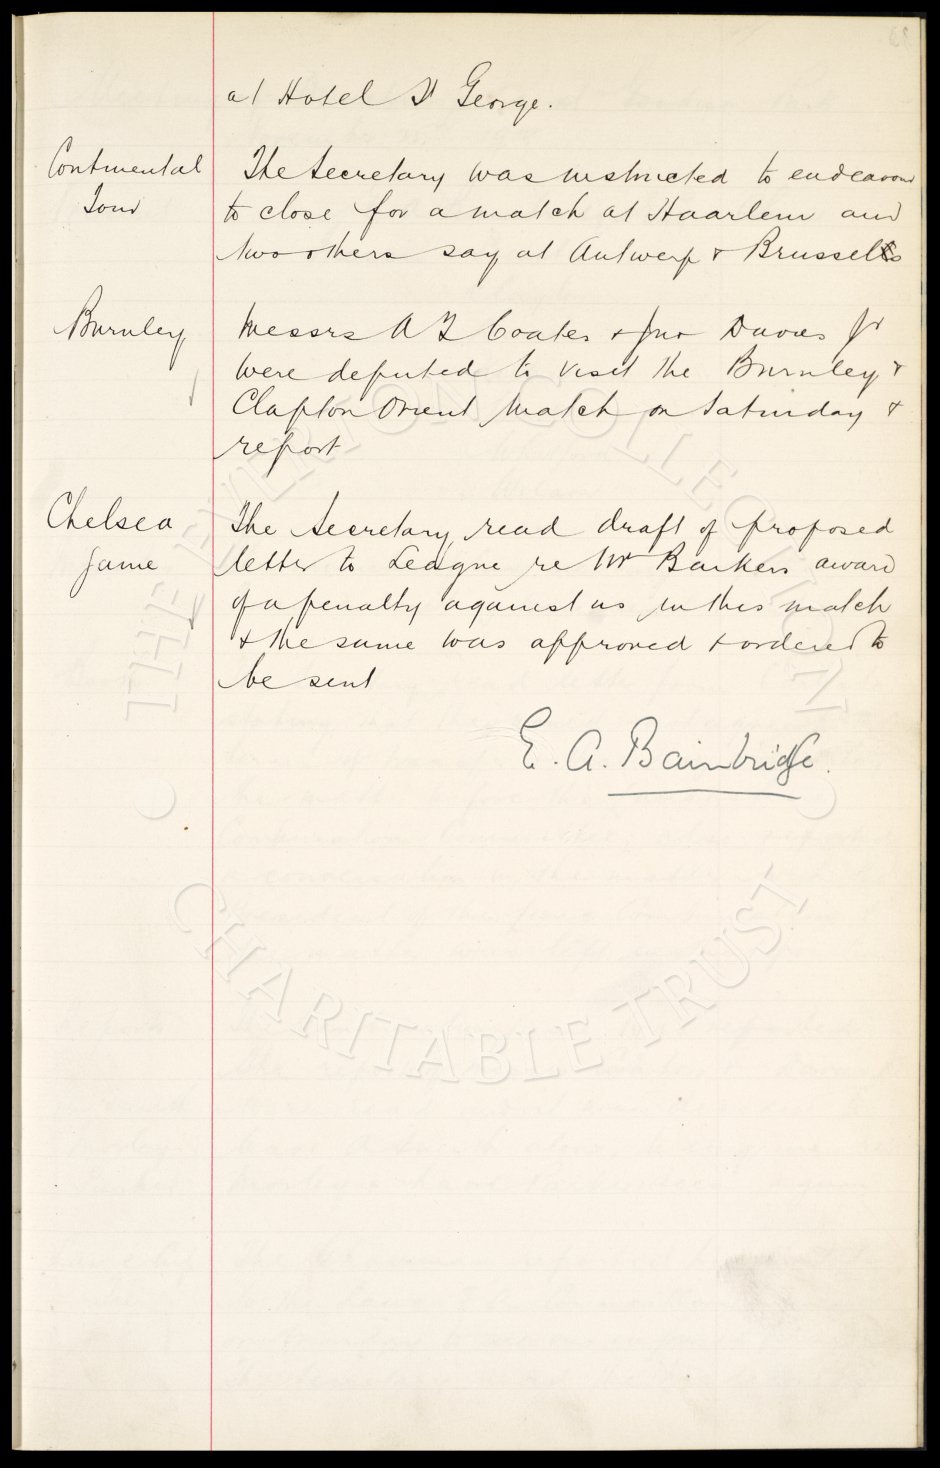 at Hotel St George.
Continental
Tour
The Secretary was instructed to endeavour
to close for a match at Haarlem and
two others say at Antwerp & Brussels
Burnley
Messrs A T Coates & Jno Davies Jr
were deputed to visit the Burnley v
Clapton Orient match on Saturday &
report
Chelsea
game
The Secretary read draft of proposed
letter to League re Mr Barkers award
of a penalty against us in this match
& the same was approved & ordered to
be sent
E. A. Bainbridge.
THE EVERTON COLLECTION
CHARITABLE TRUST